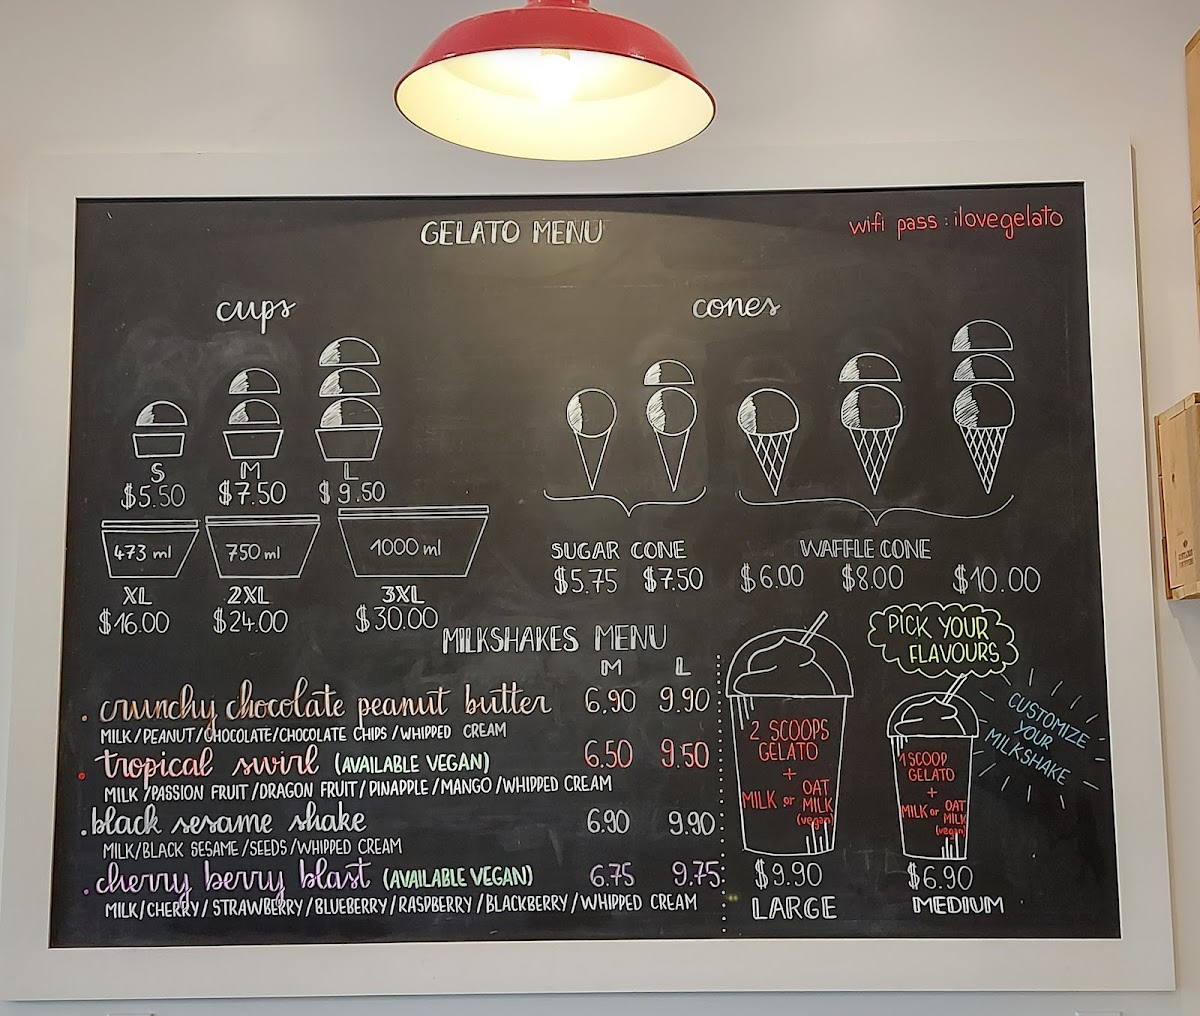 GELATO MENU
wifi pass : ilovegelato
cups
S M L
$5.50 $7.50 $9.50
473 ml 750 ml 1000 ml
XL 2XL 3XL
$16.00 $24.00 $30.00
cones
SUGAR CONE
$5.75 $7.50
WAFFLE CONE
$6.00 $8.00 $10.00
MILKSHAKES MENU
M L
. crunchy chocolate peanut butter 6.90 9.90
MILK/PEANUT/CHOCOLATE/CHOCOLATE CHIPS/WHIPPED CREAM
. tropical swirl (AVAILABLE VEGAN) 6.50 9.50
MILK/PASSION FRUIT/DRAGON FRUIT/PINAPPLE/MANGO/WHIPPED CREAM
. black sesame shake 6.90 9.90
MILK/BLACK SESAME/SEEDS/WHIPPED CREAM
. cherry berry blast (AVAILABLE VEGAN) 6.75 9.75
MILK/CHERRY/STRAWBERRY/BLUEBERRY/RASPBERRY/BLACKBERRY/WHIPPED CREAM
PICK YOUR
FLAVOURS
CUSTOMIZE
YOUR
MILKSHAKE
2 SCOOPS
GELATO
+
MILK or OAT
MILK
(vegan)
$9.90
LARGE
1 SCOOP
GELATO
+
MILK or OAT
MILK
(vegan)
$6.90
MEDIUM